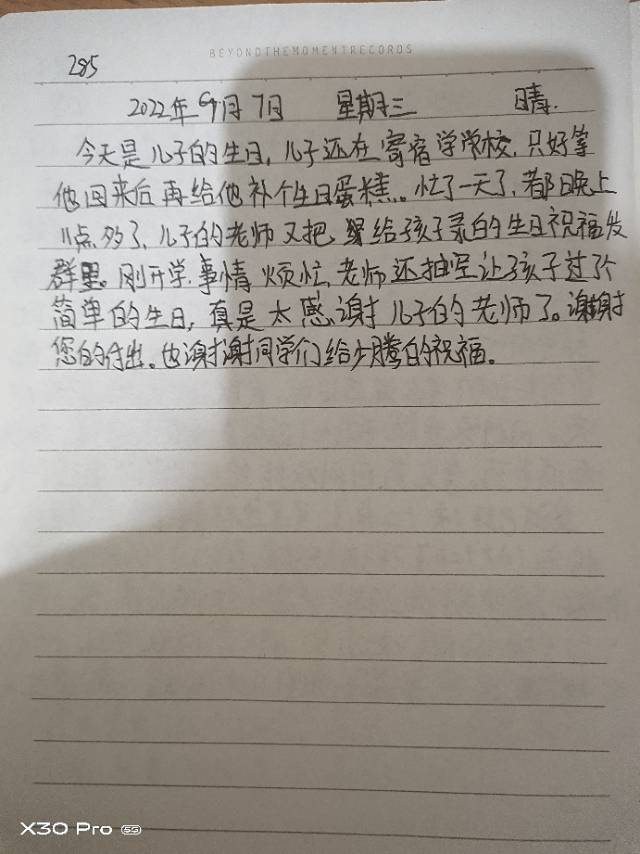 BEYONDTHEMOMENTRECORDS
285
2022年9月7日 星期三 晴.
今天是儿子的生日,儿子还在寄宿学学校,只好等
他回来后再给他补个生日蛋糕。忙了一天了,都晚上
11点多了,儿子的老师又把给孩子录的生日祝福发
群里。刚开学,事情烦忙,老师还抽空让孩子过了个
简单的生日,真是太感谢儿子的老师了。谢谢
您的付出。也谢谢同学们给少腾的祝福。
X30 Pro 5G